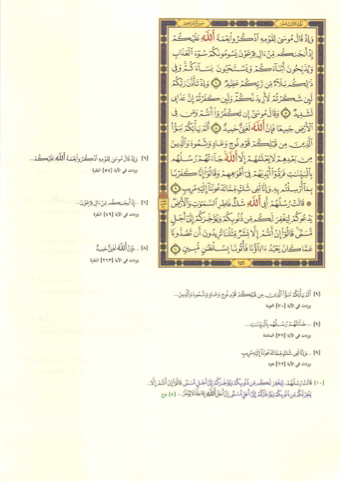 وَإِذْ قَالَ مُوسَىٰ لِقَوْمِهِ ٱذْكُرُوا۟ نِعْمَةَ ٱللَّهِ عَلَيْكُمْ
إِذْ أَنجَىٰكُم مِّنْ ءَالِ فِرْعَوْنَ يَسُومُونَكُمْ سُوٓءَ ٱلْعَذَابِ
وَيُذَبِّحُونَ أَبْنَآءَكُمْ وَيَسْتَحْيُونَ نِسَآءَكُمْ وَفِى
ذَٰلِكُم بَلَآءٌ مِّن رَّبِّكُمْ عَظِيمٌ ٦ وَإِذْ تَأَذَّنَ رَبُّكُمْ
لَئِن شَكَرْتُمْ لَأَزِيدَنَّكُمْ وَلَئِن كَفَرْتُمْ إِنَّ عَذَابِى
لَشَدِيدٌ ٧ وَقَالَ مُوسَىٰٓ إِن تَكْفُرُوٓا۟ أَنتُمْ وَمَن فِى
ٱلْأَرْضِ جَمِيعًا فَإِنَّ ٱللَّهَ لَغَنِىٌّ حَمِيدٌ ٨ أَلَمْ يَأْتِكُمْ نَبَؤُا۟
ٱلَّذِينَ مِن قَبْلِكُمْ قَوْمِ نُوحٍ وَعَادٍ وَثَمُودَ وَٱلَّذِينَ
مِنۢ بَعْدِهِمْ لَا يَعْلَمُهُمْ إِلَّا ٱللَّهُ جَآءَتْهُمْ رُسُلُهُم
بِٱلْبَيِّنَٰتِ فَرَدُّوٓا۟ أَيْدِيَهُمْ فِىٓ أَفْوَٰهِهِمْ وَقَالُوٓا۟ إِنَّا كَفَرْنَا
بِمَآ أُرْسِلْتُم بِهِۦ وَإِنَّا لَفِى شَكٍّ مِّمَّا تَدْعُونَنَآ إِلَيْهِ مُرِيبٍ ٩
قَالَتْ رُسُلُهُمْ أَفِى ٱللَّهِ شَكٌّ فَاطِرِ ٱلسَّمَٰوَٰتِ وَٱلْأَرْضِ
يَدْعُوكُمْ لِيَغْفِرَ لَكُم مِّن ذُنُوبِكُمْ وَيُؤَخِّرَكُمْ إِلَىٰٓ أَجَلٍ
مُّسَمًّى قَالُوٓا۟ إِنْ أَنتُمْ إِلَّا بَشَرٌ مِّثْلُنَا تُرِيدُونَ أَن تَصُدُّونَا
عَمَّا كَانَ يَعْبُدُ ءَابَآؤُنَا فَأْتُونَا بِسُلْطَٰنٍ مُّبِينٍ ١٠
٢٥٦
[٦] وَإِذْ قَالَ مُوسَىٰ لِقَوْمِهِ ٱذْكُرُوا۟ نِعْمَةَ ٱللَّهِ عَلَيْكُمْ...
وردت في الآية [٥٤] البقرة
[٦] ...إِذْ أَنجَىٰكُم مِّنْ ءَالِ فِرْعَوْنَ...
وردت في الآية [٤٩] البقرة
[٨] ...فَإِنَّ ٱللَّهَ لَغَنِىٌّ حَمِيدٌ
وردت في الآية [٢٦٧] البقرة
[٩] أَلَمْ يَأْتِكُمْ نَبَؤُا۟ ٱلَّذِينَ مِن قَبْلِكُمْ قَوْمِ نُوحٍ وَعَادٍ وَثَمُودَ وَٱلَّذِينَ...
وردت في الآية [٧٠] التوبة
[٩] ...جَآءَتْهُمْ رُسُلُهُم بِٱلْبَيِّنَٰتِ...
وردت في الآية [٣٢] المائدة
[٩] ...وَإِنَّا لَفِى شَكٍّ مِّمَّا تَدْعُونَنَآ إِلَيْهِ مُرِيبٍ
وردت في الآية [٦٢] هود
[١٠] قَالَتْ رُسُلُهُمْ... لِيَغْفِرَ لَكُم مِّن ذُنُوبِكُمْ وَيُؤَخِّرَكُمْ إِلَىٰٓ أَجَلٍ مُّسَمًّى قَالُوٓا۟ إِنْ أَنتُمْ إِلَّا...
يَغْفِرْ لَكُم مِّن ذُنُوبِكُمْ وَيُؤَخِّرْكُمْ إِلَىٰٓ أَجَلٍ مُّسَمًّى إِنَّ أَجَلَ ٱللَّهِ إِذَا جَآءَ لَا يُؤَخَّرُ... [٤] نوح